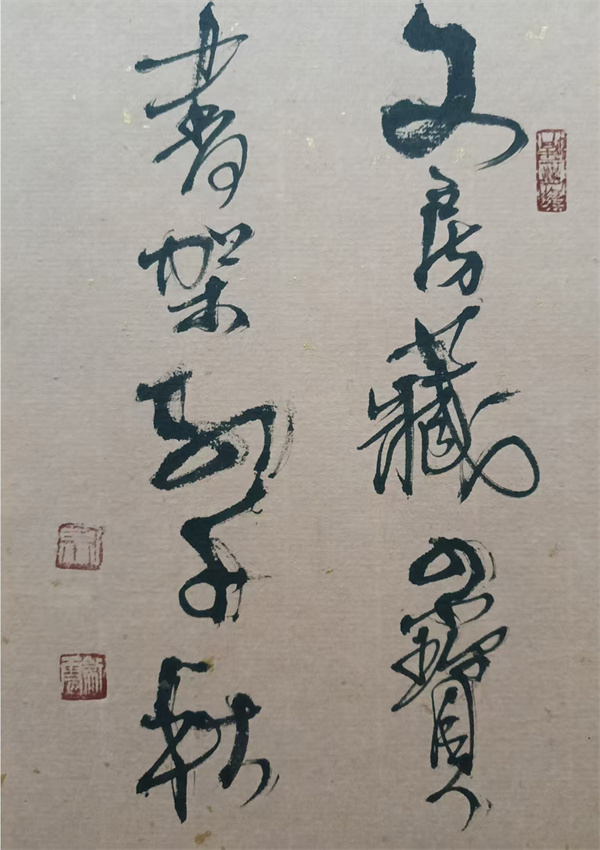 文房藏四寶
書架千秋